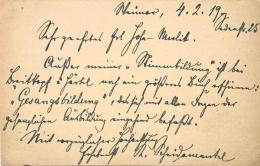 Weimar, 4. 2. 19
Sehr geehrtes Frl.
Außer meiner „Stimmbildung" ist bei
Breitkopf & Härtel noch ein größeres Buch erschienen:
„Gesangsbildung", das sich mit allen Fragen der
gesanglichen Ausbildung eingehend befaßt.
Mit vorzüglicher Hochachtung
K. Scheidemantel